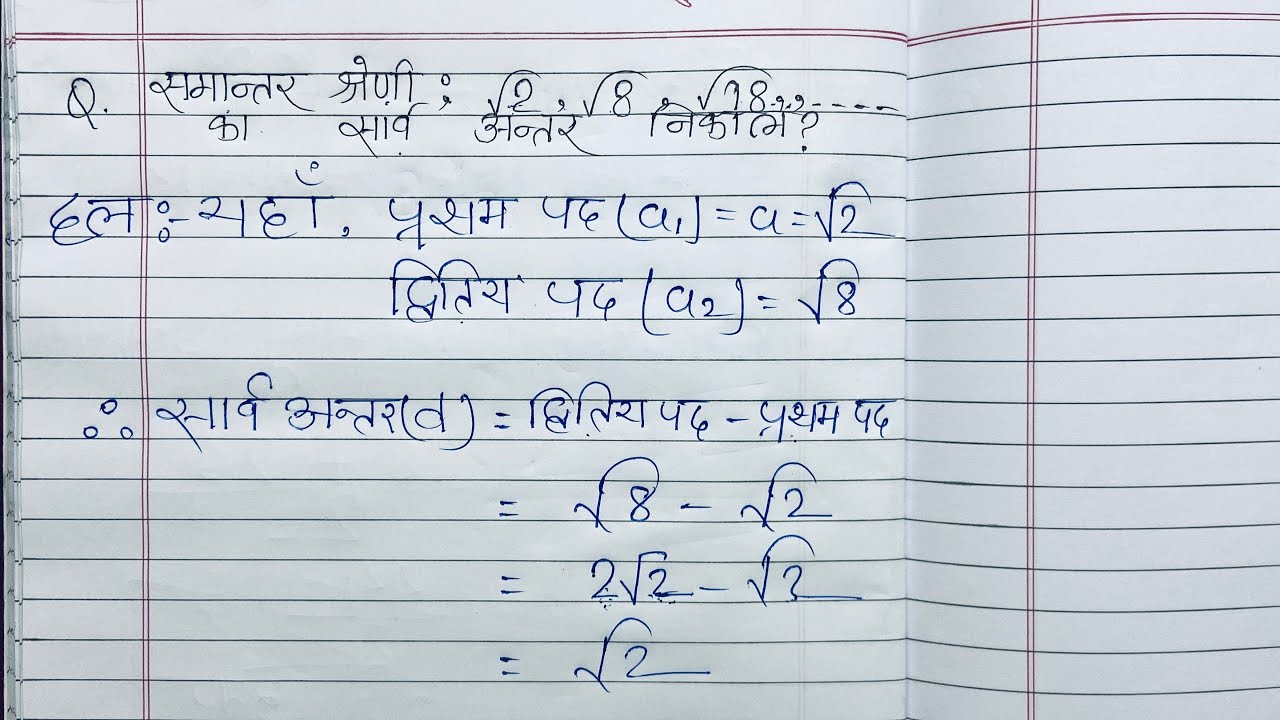 Q. समान्तर श्रेणी : √2, √8, √18, ,-----
का सार्व अन्तर निकाले?
हल :- यहाँ, प्रथम पद (a₁) = a = √2
द्वितिय पद (a₂) = √8
∴ सार्व अन्तर (d) = द्वितिय पद - प्रथम पद
= √8 - √2
= 2√2 - √2
= √2